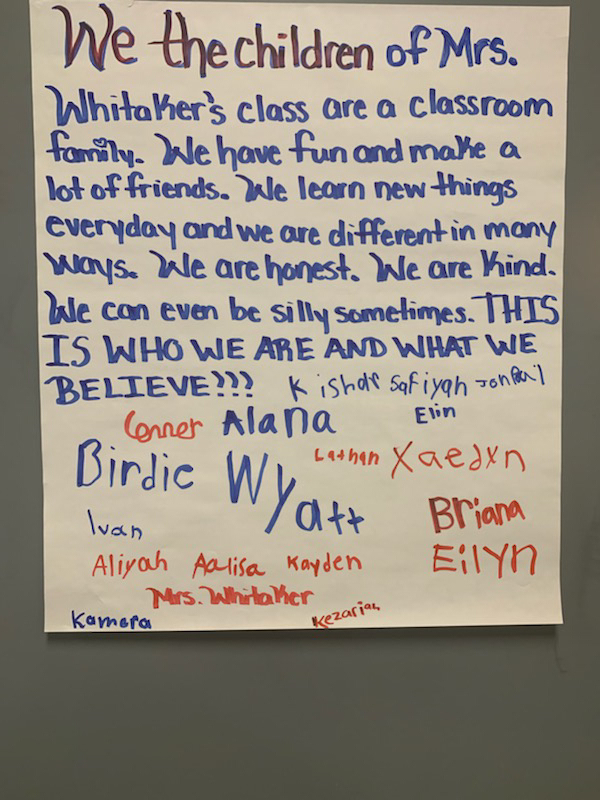 We the children of Mrs.
Whitaker's class are a classroom
family. We have fun and make a
lot of friends. We learn new things
everyday and we are different in many
ways. We are honest. We are kind.
We can even be silly sometimes. THIS
IS WHO WE ARE AND WHAT WE
BELIEVE??? Safiyah
Conner Alana Elin
Birdie Wyatt Lathan Xaedxn
Ivan Briana
Aliyah Aalisa Kayden Eilyn
Mrs. Whitaker
Kamera Kezariah